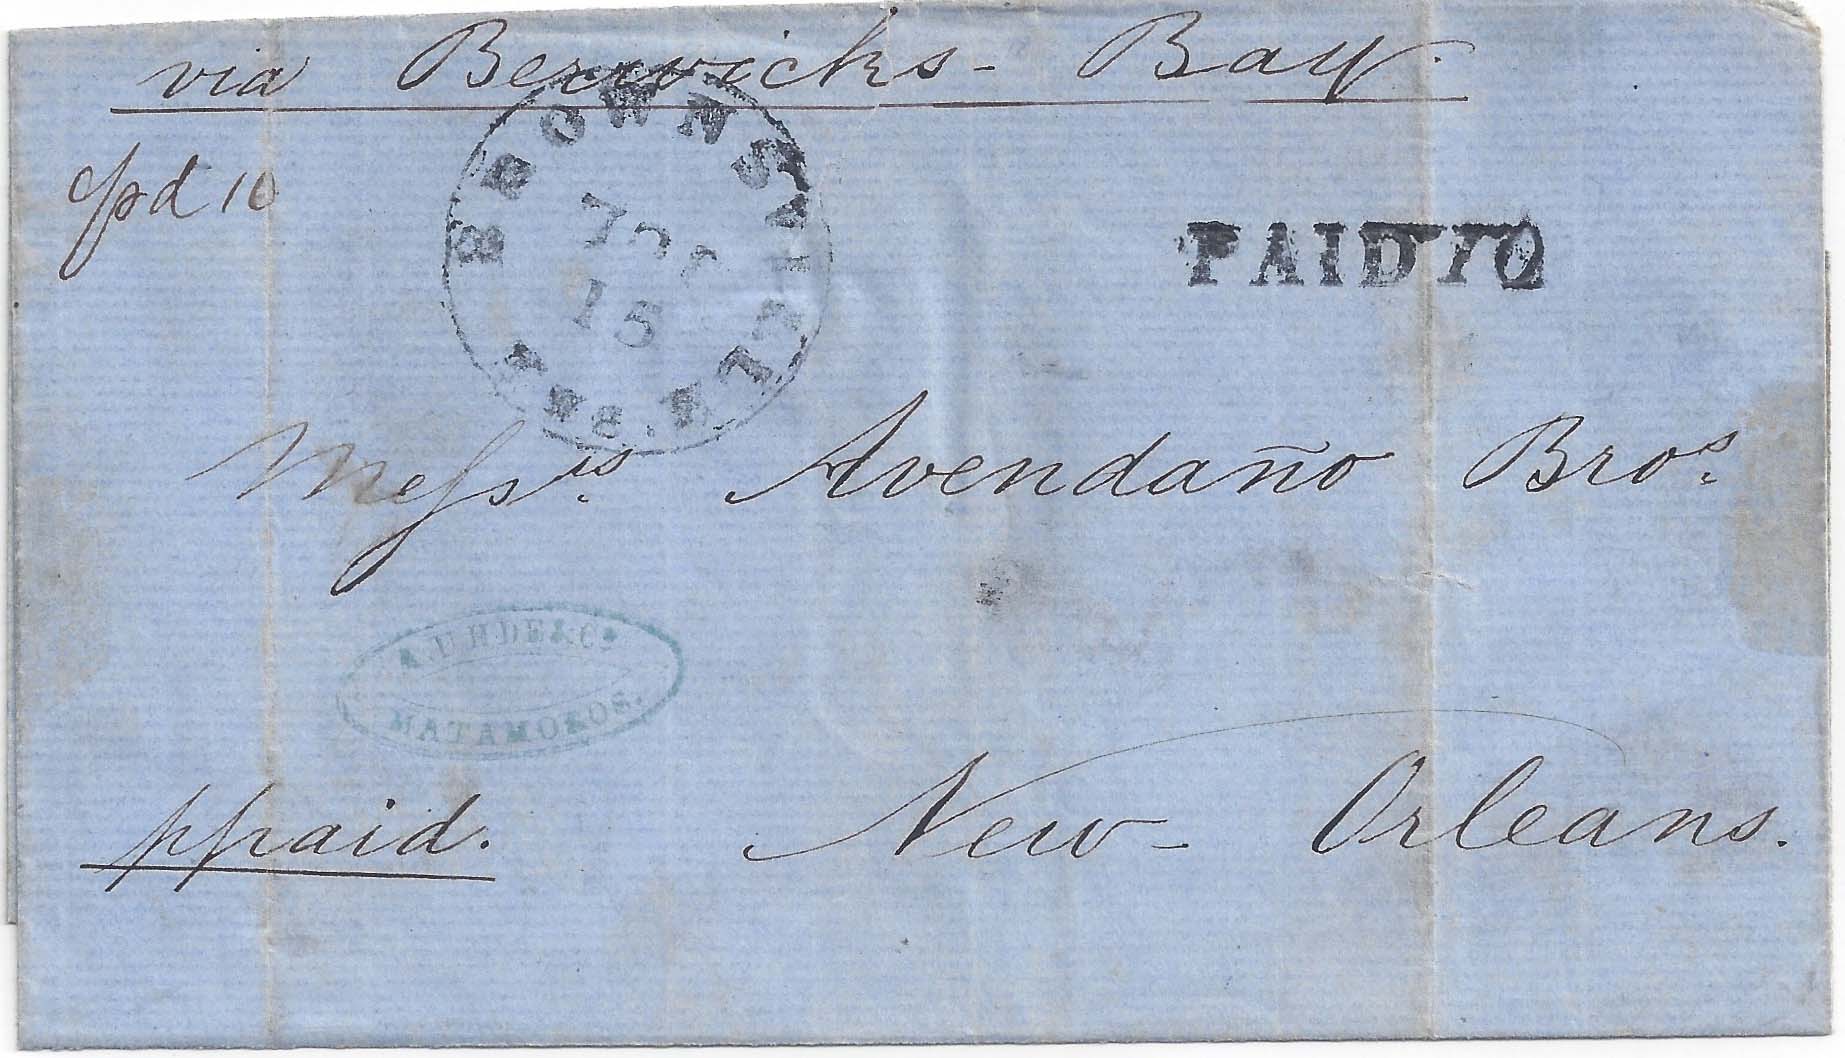 via Berwicks - Bay.
pd 10
BROWNSVILLE. TEX.
JUL
15
PAID 10
Messrs. Avendaño Bros.
A. UHDE & Co
MATAMOROS.
ppaid.
New - Orleans.